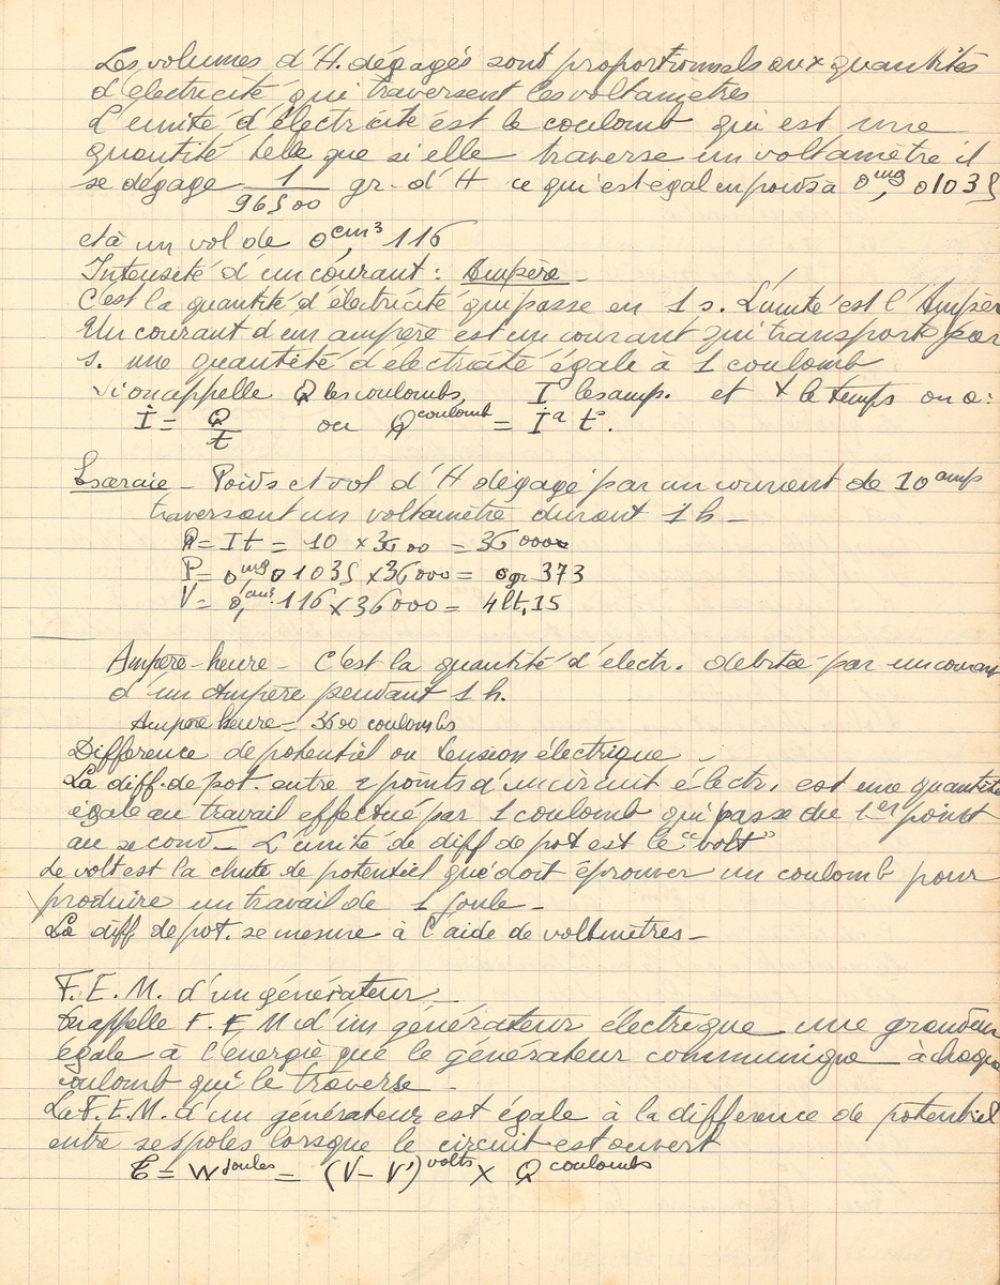 Les volumes d'H. dégagés sont proportionnels aux quantités
d'électricité qui traversent les voltamètres
L'unité d'électricité est le coulomb qui est une
quantité telle que si elle traverse un voltamètre il
se dégage 1/96500 gr. d'H ce qui est égal en poids à 0,mg 01035
et à un vol de 0,cm³ 116
Intensité d'un courant : Ampère -
C'est la quantité d'électricité qui passe en 1 s. L'unité est l'Ampère
Un courant d'un ampère est un courant qui transporte par
s. une quantité d'électricité égale à 1 coulomb
Si on appelle Q les coulombs, I les amp. et t le temps on a :
I = Q/t ou Q coulomb = I a t s.
Poids et vol d'H dégagé par un courant de 10 amp
traversant un voltamètre durant 1 h -
Q = It = 10 x 3600 = 36000
P = 0,mg 01035 x 36000 = 0gr 373
V = 0,cm³ 116 x 36000 = 4lt,15
Ampère-heure - C'est la quantité d'électr. débitée par un courant
d'un Ampère pendant 1 h.
Ampère heure = 3600 coulombs
Différence de potentiel ou tension électrique
La diff. de pot. entre 2 points d'un circuit électr. est une quantité
égale au travail effectué par 1 coulomb qui passe du 1er point
au second - L'unité de diff de pot est le "volt"
Le volt est la chute de potentiel que doit éprouver un coulomb pour
produire un travail de 1 Joule -
La diff de pot. se mesure à l'aide de voltmètres -
F. E. M. d'un générateur -
On appelle F. E. M d'un générateur électrique une grandeur
égale à l'énergie que le générateur communique à chaque
coulomb qui le traverse -
La F. E. M. d'un générateur est égale à la différence de potentiel
entre ses pôles lorsque le circuit est ouvert
E = W Joules = (V - V') volts x Q coulombs